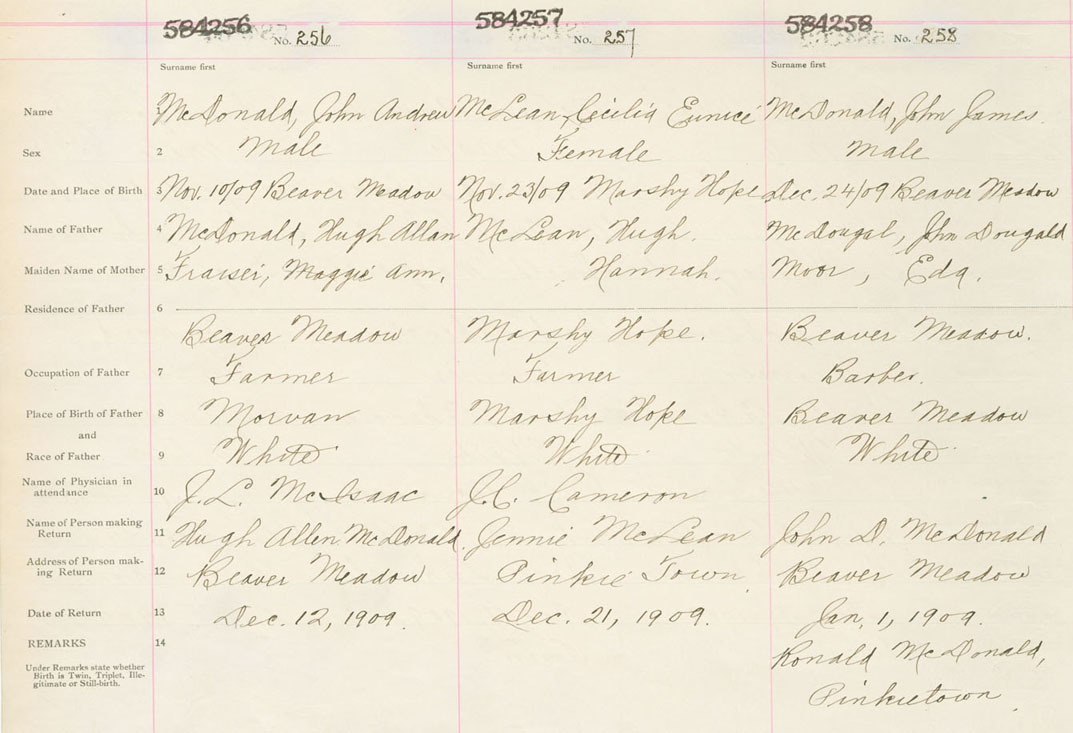 584256 No. 256 584257 No. 257 584258 No. 258
Surname first Surname first Surname first
Name 1 McDonald, John Andrew McLean, Cecilia Eunice McDonald, John James.
Sex 2 Male Female Male
Date and Place of Birth 3 Nov. 10/09 Beaver Meadow Nov. 23/09 Marshy Hope Dec. 24/09 Beaver Meadow
Name of Father 4 McDonald, Hugh Allan McLean, Hugh. McDougal, John Dougald
Maiden Name of Mother 5 Fraiser, Maggie Ann. Hannah. Moor, Eda.
Residence of Father 6
Beaver Meadow Marshy Hope. Beaver Meadow.
Occupation of Father 7 Farmer Farmer Barber.
Place of Birth of Father 8 Morvan Marshy Hope Beaver Meadow
and
Race of Father 9 White White White
Name of Physician in
attendance 10 J. L. McIsaac J.C. Cameron
Name of Person making
Return 11 Hugh Allen McDonald. Jennie McLean John D. McDonald
Address of Person mak-
ing Return 12 Beaver Meadow Pinkie Town Beaver Meadow
Date of Return 13 Dec. 12, 1909. Dec. 21, 1909. Jan. 1, 1909.
REMARKS 14 Ronald McDonald,
Under Remarks state whether
Birth is Twin, Triplet, Ille-
gitimate or Still-birth.
Pinkietown